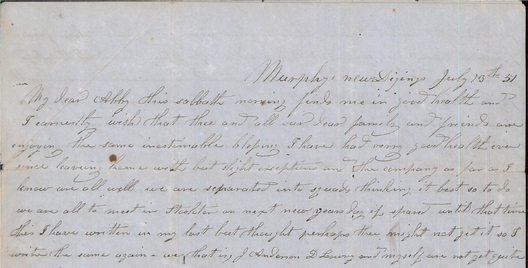 Murphys new Digings July 13th 51
My dear Abby this sabbath morning finds me in good health and
I earnestly wish that thee and all our dear family and friends are
enjoying the same inestimable blessing I have had very good health ever
since leaving home with but slight exception and the company as far as I
know are all well we are separated into squads thinking it best so to do
we are all to meet in Stockton on next new years day if spared until that time
this I have written in my last but thought perhaps thee might not get it so I
write the same again - we that is J Anderson D Lewis and myself are not get